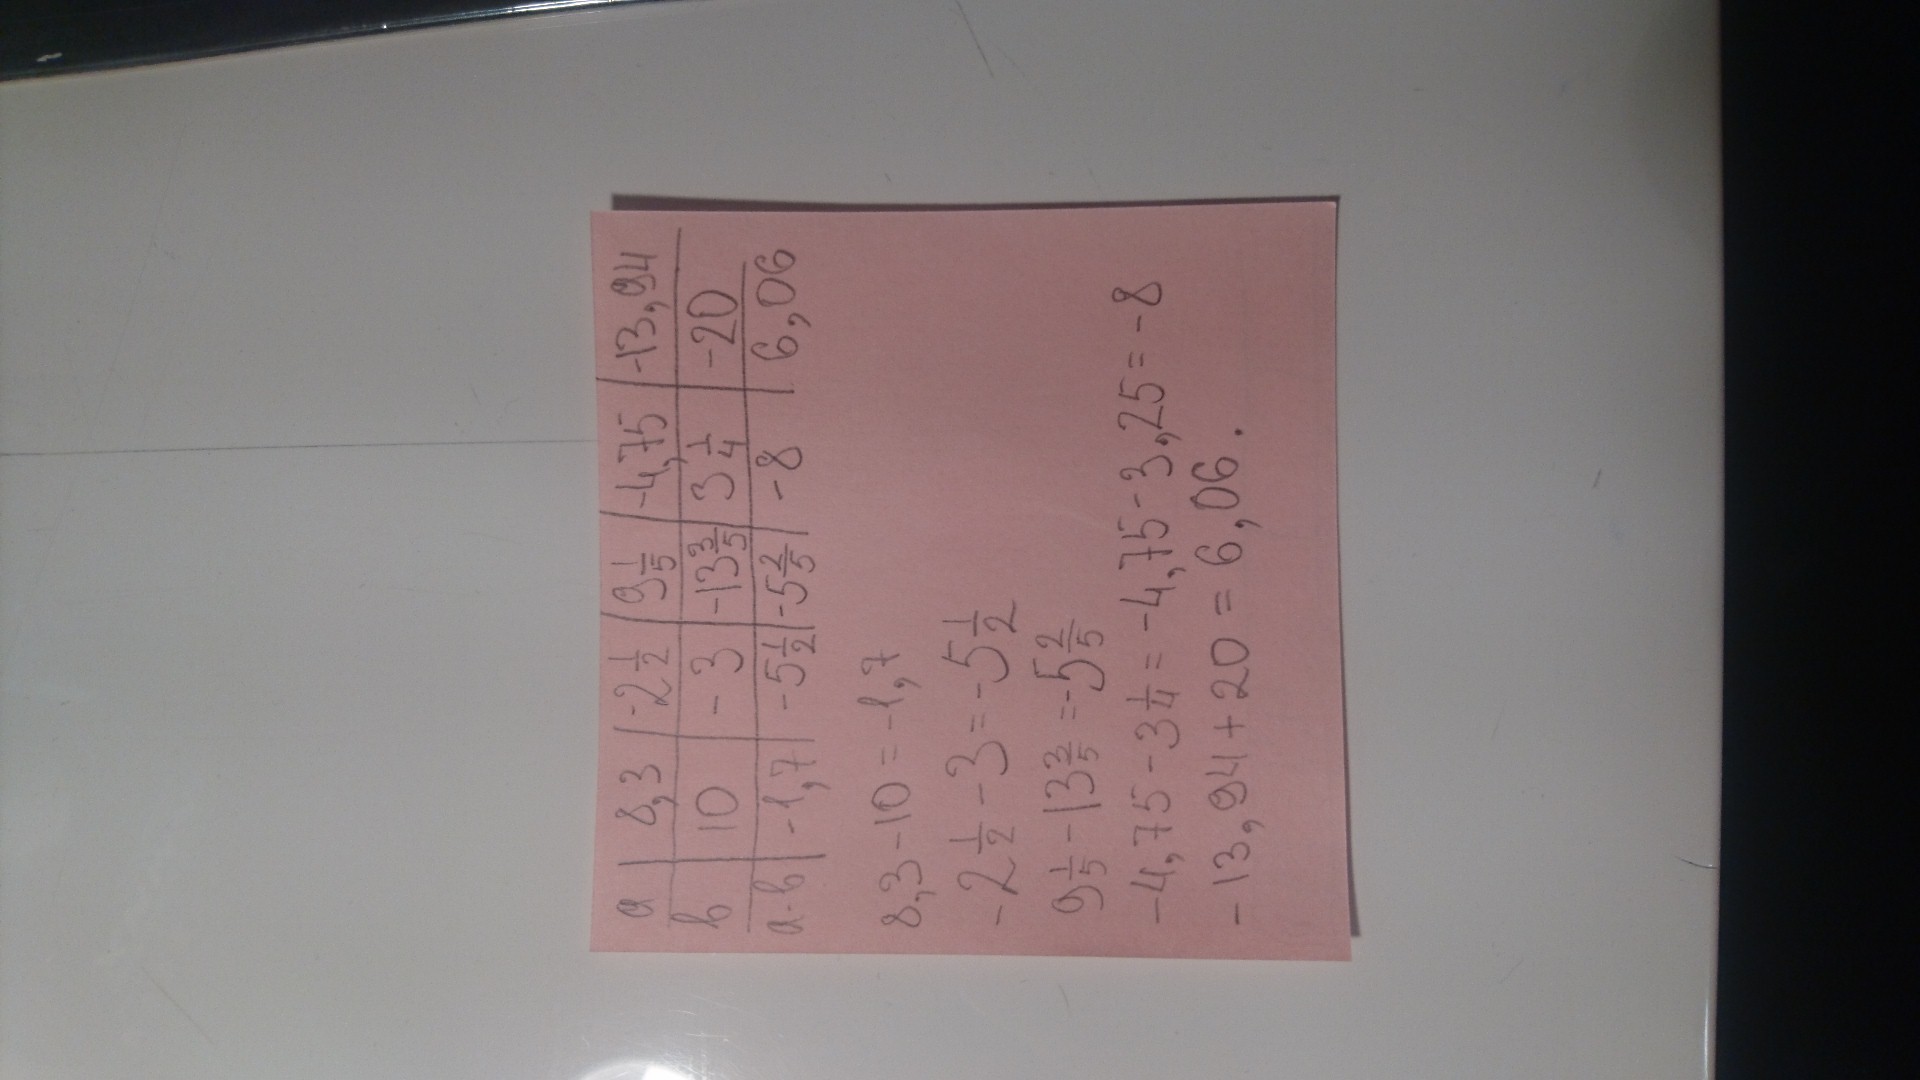 a 8,3 -2 1/2 9 1/5 -4,75 -13,94
b 10 -3 -13 3/5 3 1/4 -20
a-b -1,7 -5 1/2 -5 2/5 -8 6,06
8,3-10=-1,7
-2 1/2-3=-5 1/2
9 1/5-13 3/5=-5 2/5
-4,75-3 1/4=-4,75-3,25=-8
-13,94+20=6,06.